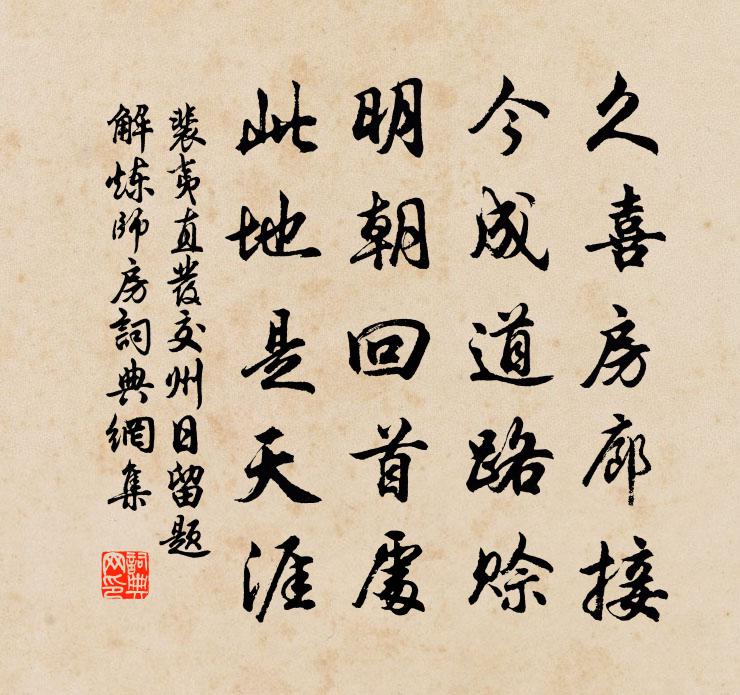 久喜房廊接
今成道路賒
明朝回首處
此地是天涯
裴夷直發交州日留題
解炼師房詞典網集
詞典网印